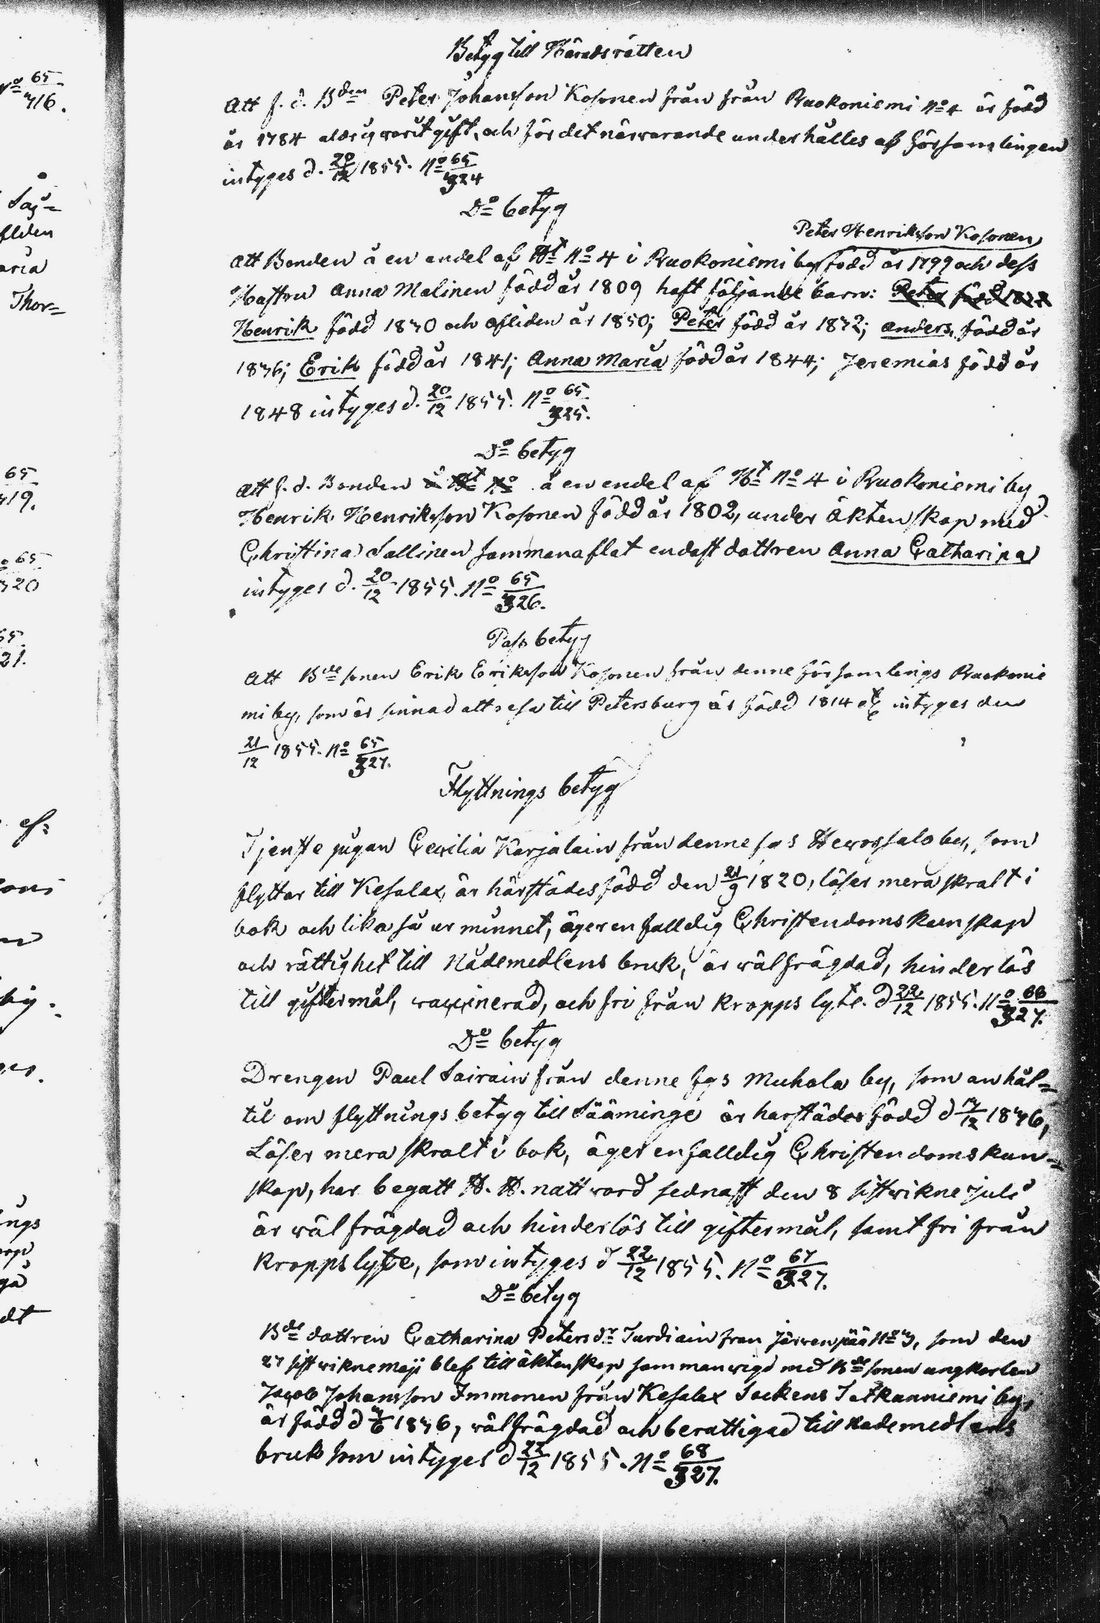 No 65/416.
Betyg till Häradsrätten
Att f. d. Bden Peter Johansson Kosonen från från Ruokoniemi No 4 är född
år 1784 aldrig varit gift, och för det närvarande underhålles af församlingen
intyges d. 20/12 1855. No 65/324
Do betyg
Peter Henriksson Kosonen,
Att Bonden å en endel af Ht No 4 i Ruokoniemi by född år 1799 och dess
Hustru Anna Malinen född år 1809 haft följande barn: Peter född
Henrik född 1830 och afliden år 1850; Peter född år 1832; Anders född år
1836; Erik född år 1841; Anna Maria född år 1844; Jeremias född år
1848 intyges d. 20/12 1855. No 65/325.
Do betyg
Att f. d. Bonden å en endel af Ht No 4 i Ruokoniemi by
Henrik Henriksson Kosonen född år 1802, under äktenskap med
Christina Sallinen sammanaflat endast dottren Anna Catharina
intyges d. 20/12 1855. No 65/326.
Pass betyg
Att Bde sonen Erik Eriksson Kosonen från denne församlings Ruokonie
mi by, som är sinnad att resa till Petersburg är född 1814 etc intyges den
21/12 1855. No 65/327.
Flyttnings betyg
Tjenste pigan Cecilia Karjalain från denne fgs Hevossalo by, som
flyttar till Kesalax, är härstädes född den 21/9 1820, läser mera skralt i
bok och lika så ur minnet, äger enfalldig Christendoms kunskap
och rättighet till Nådemedlens bruk, är välfrägdad, hinderlös
till giftermål, vaccinerad, och fri från kropps lyte. d 22/12 1855. No 66/327.
Do betyg
Drengen Paul Sairain från denne fgs Muhola by, som anhål-
lit om flyttnings betyg till Sääminge är harstädes född d 17/12 1836,
Läser mera skralt i bok, äger enfalldig Christendoms kun-
skap, har begått H. H. nattvard sednast den 8 sistvikne Juli
är välfrägdad och hinderlös till giftermål, samt fri från
kropps lyte, som intyges d 22/12 1855. No 67/327.
Do betyg
Bde dottren Catharina Petersdr Turdiain från Järvenpää No 3, som den
27 sistvikne maji blef till äktenskap sammanvigd med Bde sonen ungkarlen
Jacob Johansson Immonen från Kesalax Sockens Jalkanniemi by,
är född d 1836, välfrägdad och berättigad till nådemedlens
bruk som intyges d 22/12 1855. No 68/327.